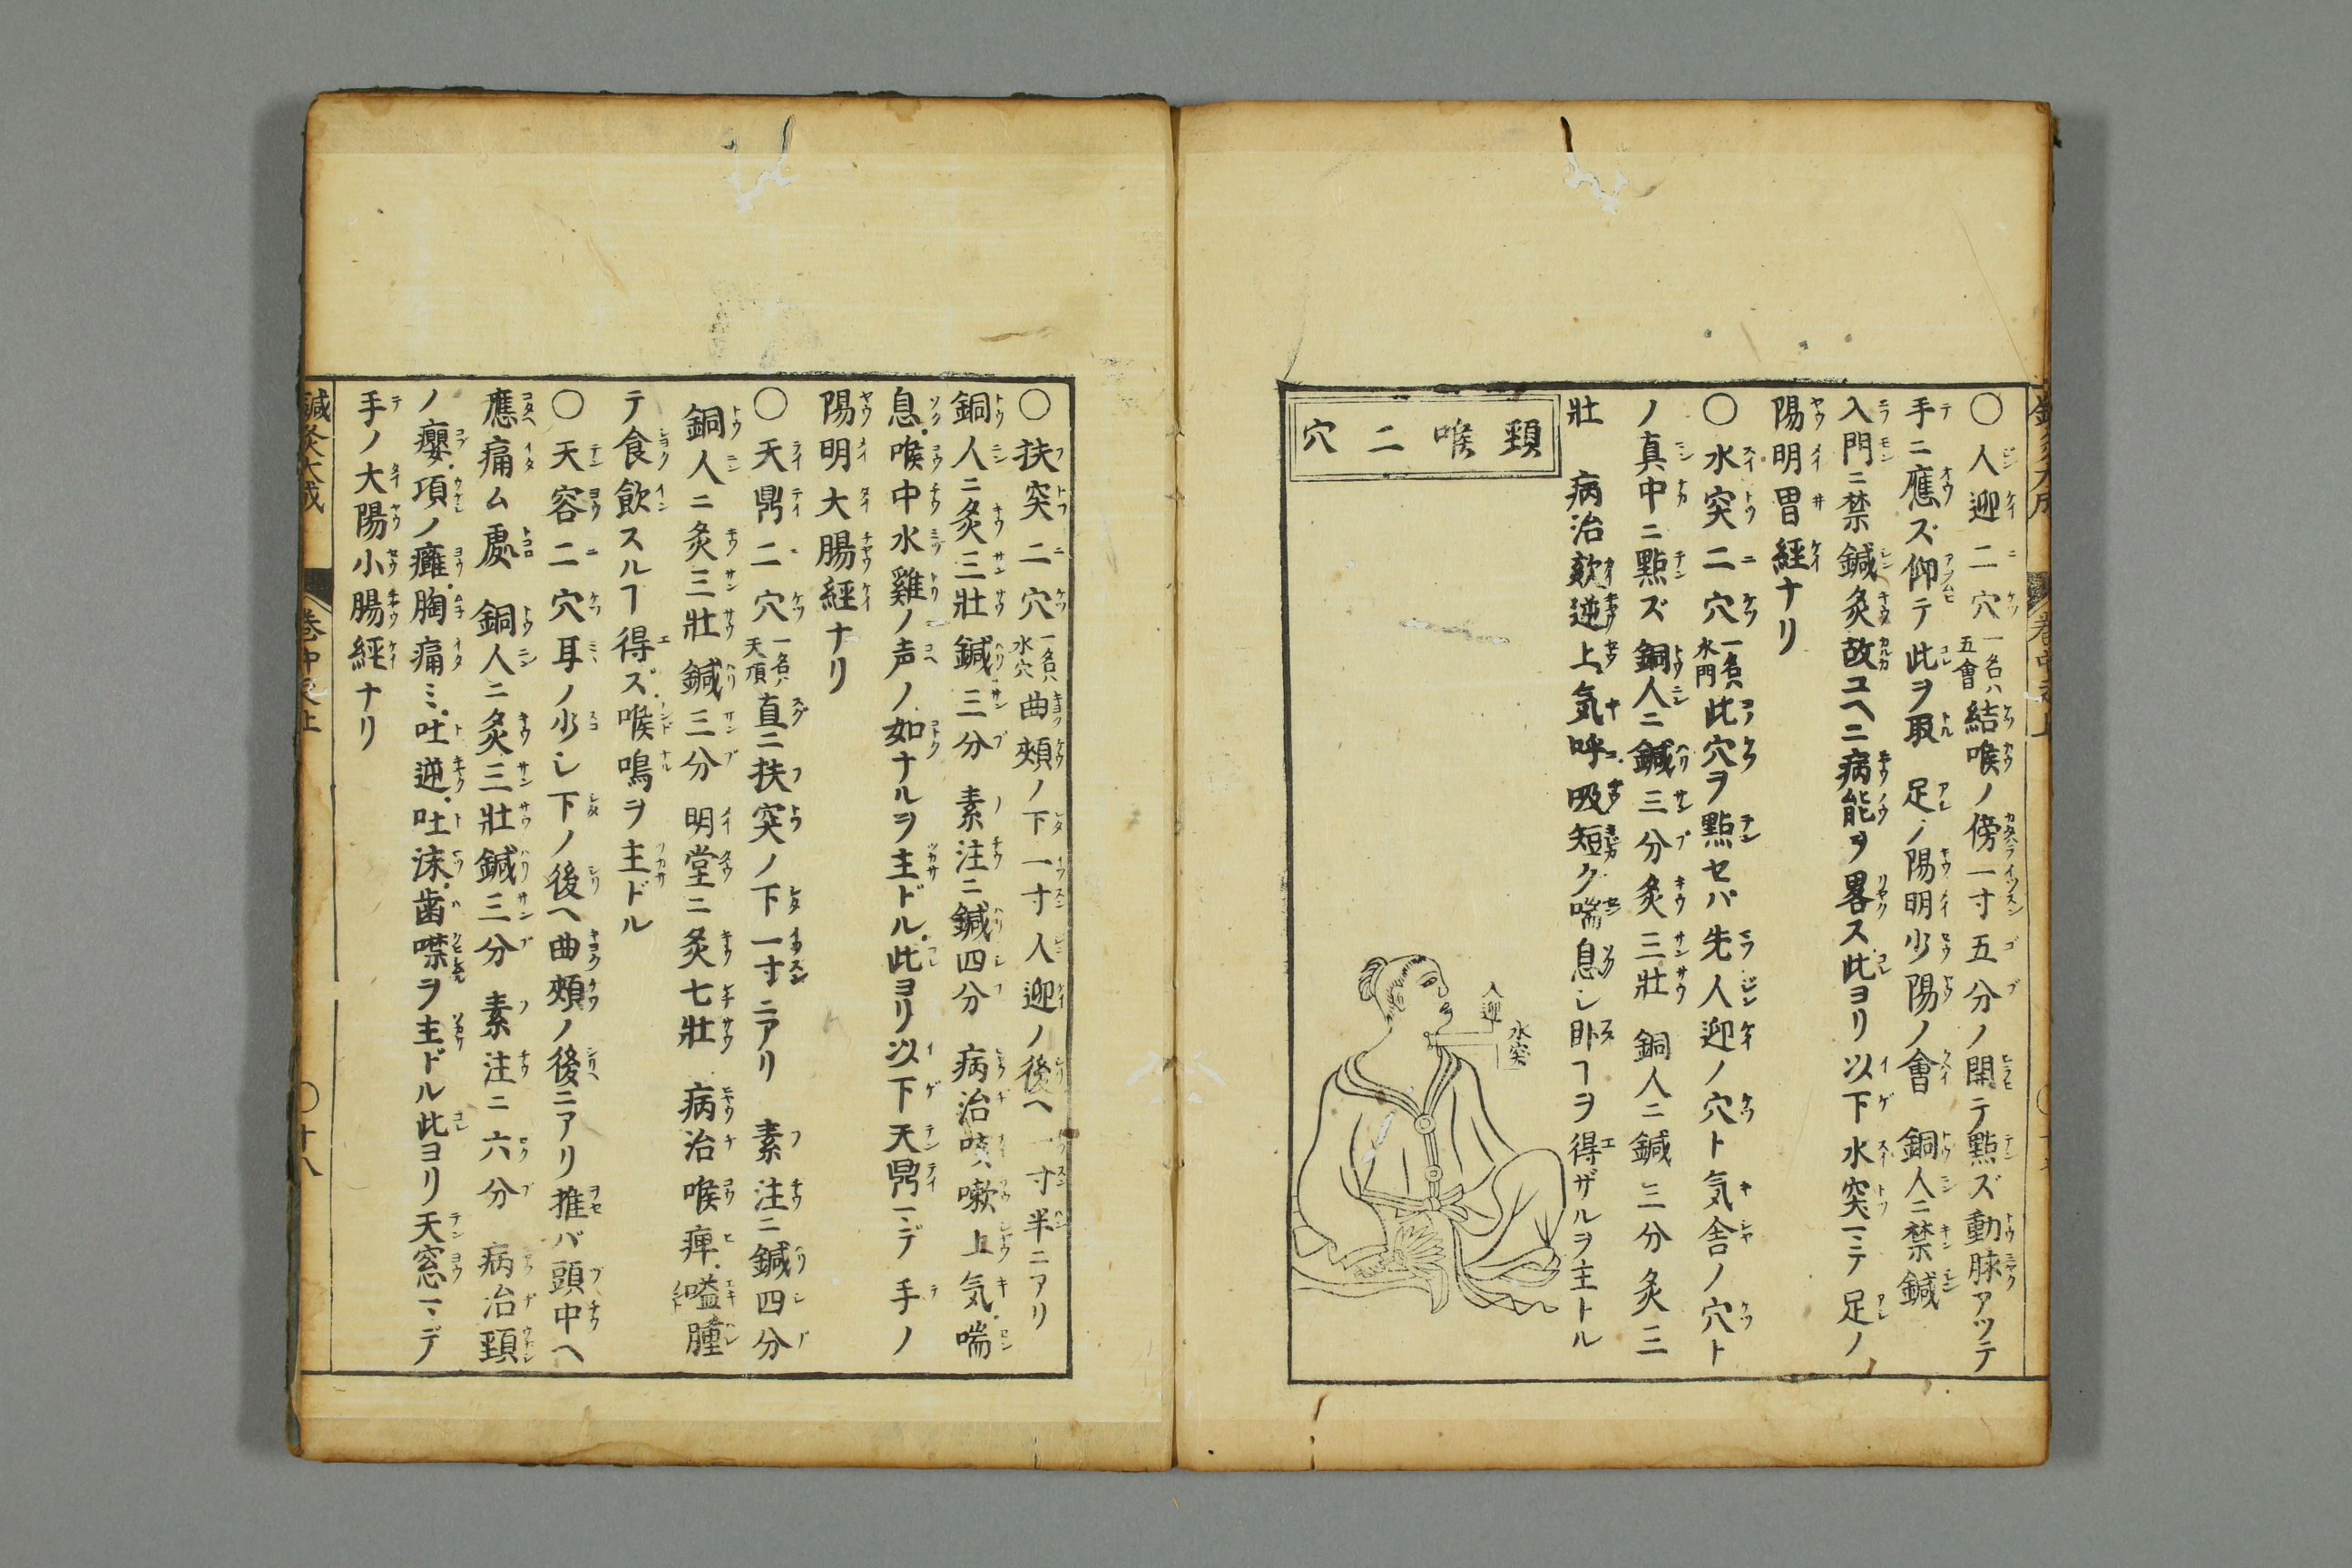 ○人迎二穴一名ハ五會結喉ノ傍一寸五分ノ開テ點ズ動脉アツテ
手ニ應ズ仰テ此ヲ取 足ノ陽明少陽ノ會 銅人ニ禁鍼
入門ニ禁鍼灸故ユヘニ病能ヲ畧ス此ヨリ以下水突マテ足ノ
陽明胃經ナリ
○水突二穴一名水門此穴ヲ點セバ先人迎ノ穴ト気舎ノ穴ト
ノ真中ニ點ズ銅人ニ鍼三分灸三壯 銅人ニ鍼三分灸三
壯 病治欬逆上気呼吸短ク喘息シ卧ヿヲ得ザルヲ主トル
頸喉二穴
人迎
水突
○扶突二穴一名ハ水穴曲頰ノ下一寸人迎ノ後ヘ一寸半ニアリ
銅人ニ灸三壯鍼三分 素注ニ鍼四分 病治咳嗽上気喘
息喉中水雞ノ声ノ如ナルヲ主ドル此ヨリ以下天鼎マデ手ノ
陽明大腸經ナリ
○天鼎二穴一名ハ天頂直ニ扶突ノ下一寸ニアリ 素注ニ鍼四分
銅人ニ灸三壯鍼三分 明堂ニ灸七壯 病治喉痺嗌腫
テ食飲スルヿ得ズ喉鳴ヲ主ドル
○天容二穴耳ノ少シ下ノ後ヘ曲頰ノ後ニアリ推バ頭中ヘ
應痛ム處 銅人ニ灸三壯鍼三分 素注ニ六分 病治頸
ノ癭項ノ癰胸痛ミ吐逆吐沫歯噤ヲ主ドル此ヨリ天窓マデ
手ノ大陽小腸經ナリ
鍼灸大成 巻中之上 ○十八